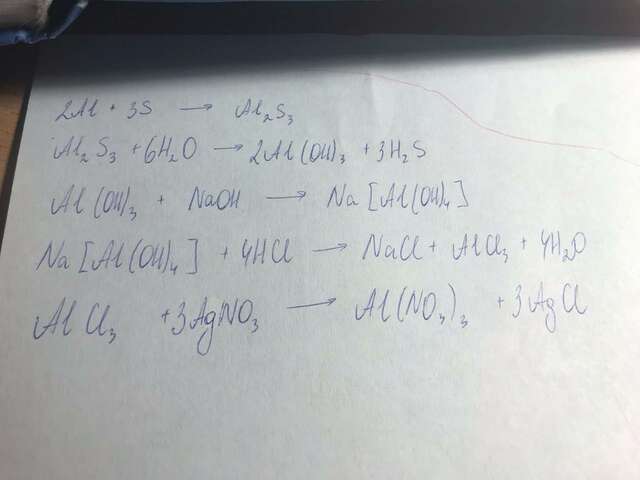 2Al + 3S → Al₂S₃
Al₂S₃ + 6H₂O → 2Al(OH)₃ + 3H₂S
Al(OH)₃ + NaOH → Na[Al(OH)₄]
Na[Al(OH)₄] + 4HCl → NaCl + AlCl₃ + 4H₂O
AlCl₃ + 3AgNO₃ → Al(NO₃)₃ + 3AgCl